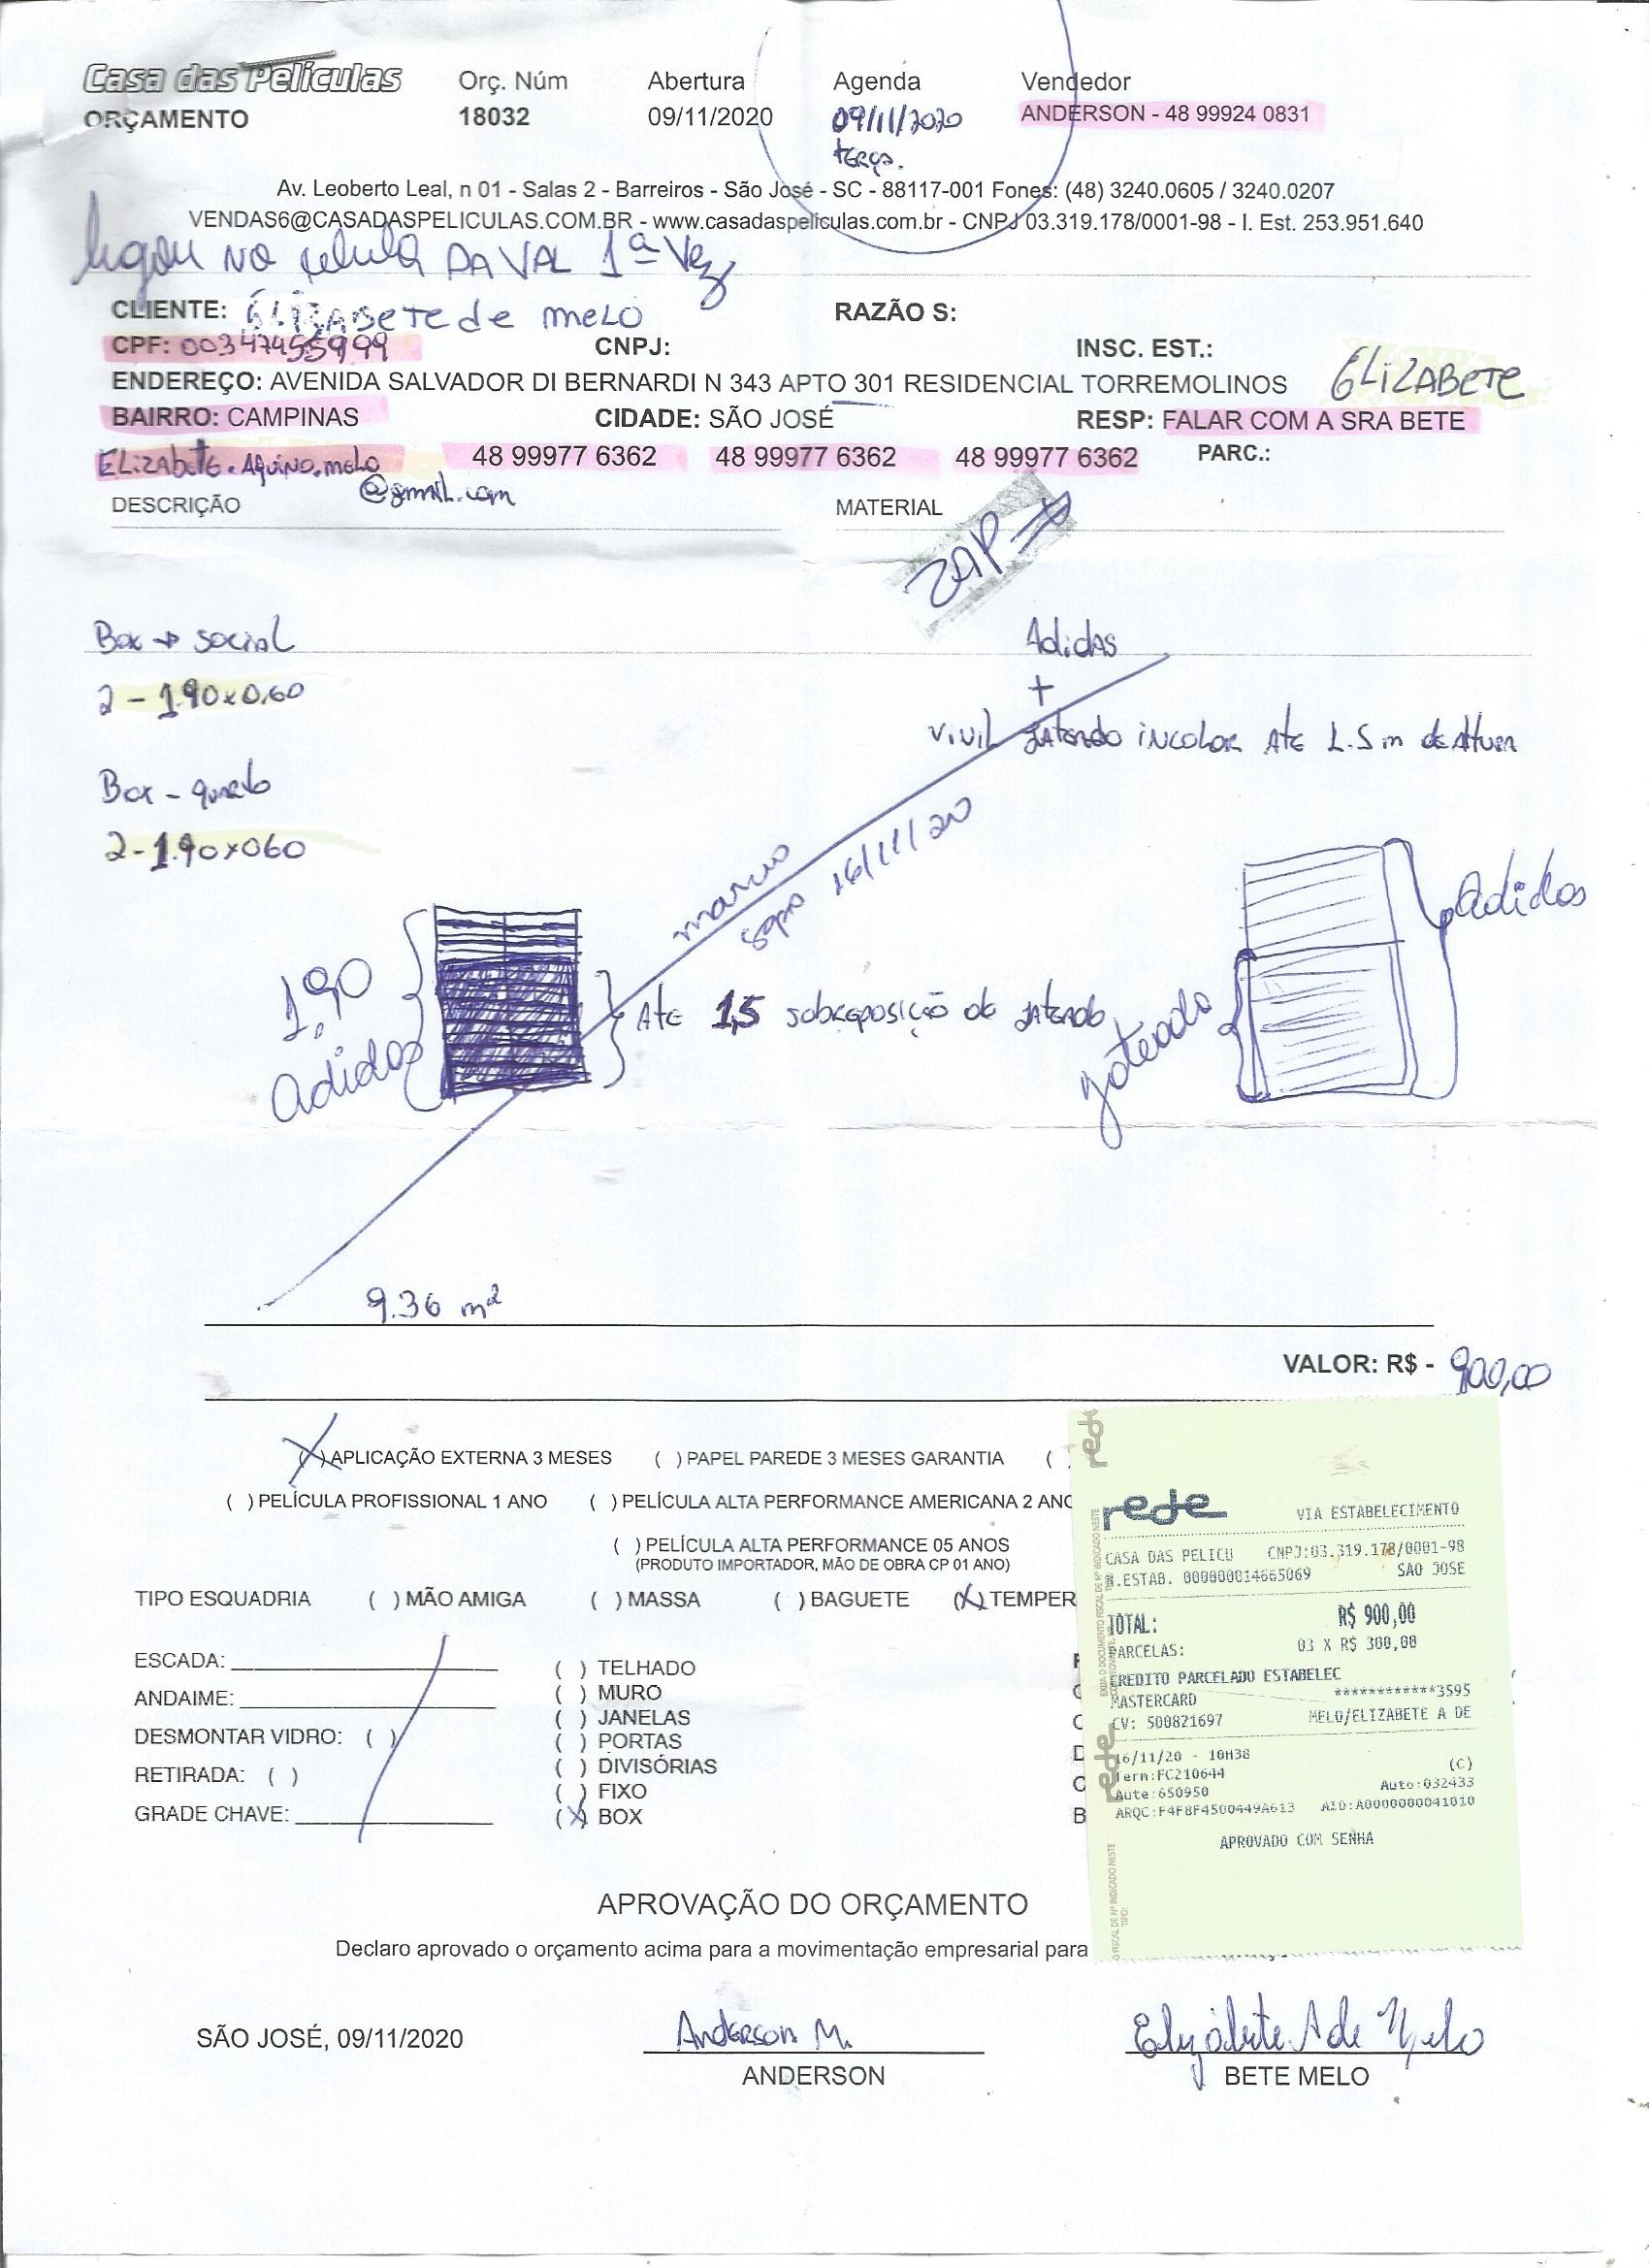 Casa das Películas Orç. Núm Abertura Agenda Vendedor
ORÇAMENTO 18032 09/11/2020 09/11/2020 ANDERSON - 48 99924 0831
terça.
Av. Leoberto Leal, n 01 - Salas 2 - Barreiros - São José - SC - 88117-001 Fones: (48) 3240.0605 / 3240.0207
VENDAS6@CASADASPELICULAS.COM.BR - www.casadaspeliculas.com.br - CNPJ 03.319.178/0001-98 - I. Est. 253.951.640
ligou no DA VAL 1ª Vez
CLIENTE: ELIZABETE de MELO RAZÃO S:
CPF: 00347455999 CNPJ: INSC. EST.:
ENDEREÇO: AVENIDA SALVADOR DI BERNARDI N 343 APTO 301 RESIDENCIAL TORREMOLINOS ELIZABETE
BAIRRO: CAMPINAS CIDADE: SÃO JOSÉ RESP: FALAR COM A SRA BETE
ELIZABETE.AQUINO.MELO 48 99977 6362 48 99977 6362 48 99977 6362 PARC.:
@gmail.com
DESCRIÇÃO MATERIAL
ZAP
Box → social Adidas
+
2 - 1.90x0,60
vivil jateado incolor Ate 1.5 m de Altura
Box - quarto
2-1.90x060
marcio
16/11/20
Adidas
1,90
Adidas
Ate 1,5 sobreposição do jateado
jateado
9.36 m²
VALOR: R$ - 900,00
(X) APLICAÇÃO EXTERNA 3 MESES ( ) PAPEL PAREDE 3 MESES GARANTIA (
( ) PELÍCULA PROFISSIONAL 1 ANO ( ) PELÍCULA ALTA PERFORMANCE AMERICANA 2 ANO
( ) PELÍCULA ALTA PERFORMANCE 05 ANOS
(PRODUTO IMPORTADOR, MÃO DE OBRA CP 01 ANO)
TIPO ESQUADRIA ( ) MÃO AMIGA ( ) MASSA ( ) BAGUETE (X) TEMPER
ESCADA:
ANDAIME:
DESMONTAR VIDRO: ( )
RETIRADA: ( )
GRADE CHAVE:
( ) TELHADO
( ) MURO
( ) JANELAS
( ) PORTAS
( ) DIVISÓRIAS
( ) FIXO
(X) BOX
rede VIA ESTABELECIMENTO
CASA DAS PELICU CNPJ:03.319.178/0001-98
N.ESTAB. 000000014665069 SAO JOSE
TOTAL: R$ 900,00
PARCELAS: 03 X R$ 300,00
CREDITO PARCELADO ESTABELEC
MASTERCARD ************3595
CV: 500821697 MELO/ELIZABETE A DE
16/11/20 - 10H38 (C)
Term:FC210644 Auto:032433
Aute:650950
ARQC:F4F8F4500449A613 AID:A0000000041010
APROVADO COM SENHA
APROVAÇÃO DO ORÇAMENTO
Declaro aprovado o orçamento acima para a movimentação empresarial para
SÃO JOSÉ, 09/11/2020 Anderson M. Elizabete A de Melo
ANDERSON BETE MELO